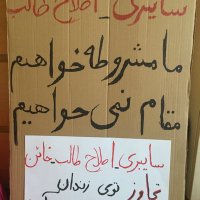 سایبری_اصلاح طالب
ما مشروطه خواهیم
مقام نمی خواهیم
سایبری_اصلاح طالب خائن
تجاوز توی زندان